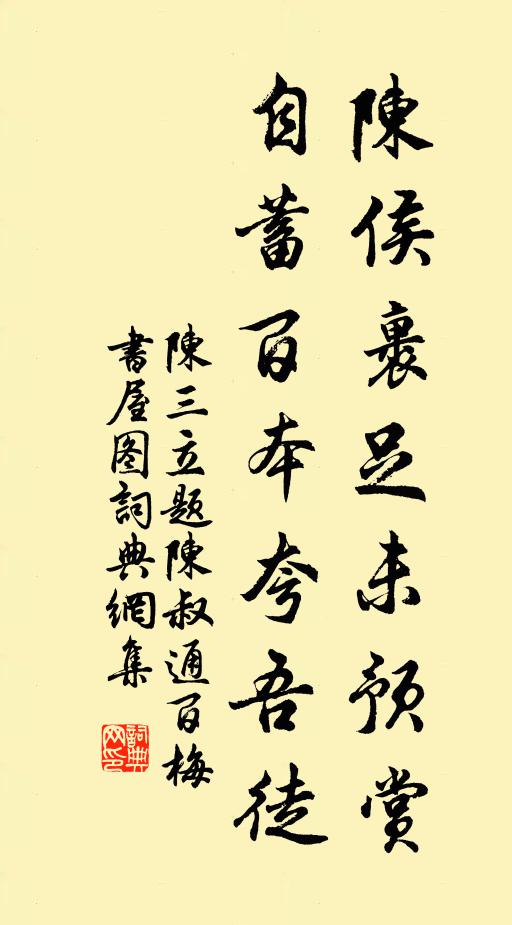 陳侯裹足未預賞
自蓄百本夸吾徒
陳三立题陳叔通百梅
書屋图詞典網集
詞典
网印